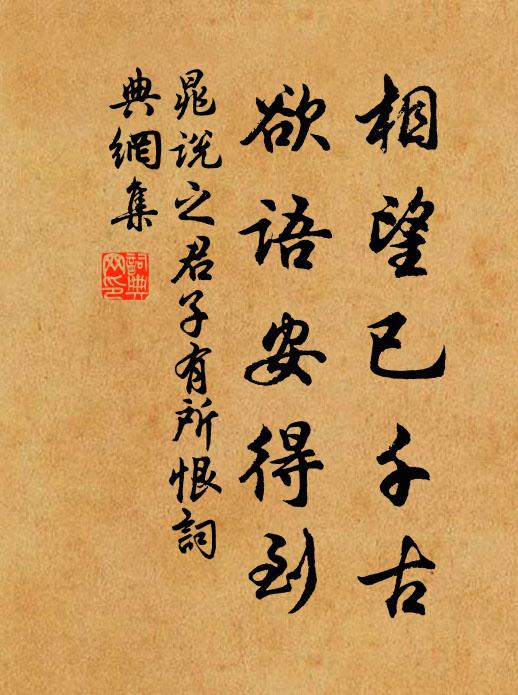 相望已千古
欲语安得到
晁说之君子有所恨词
典网集
词典
网印